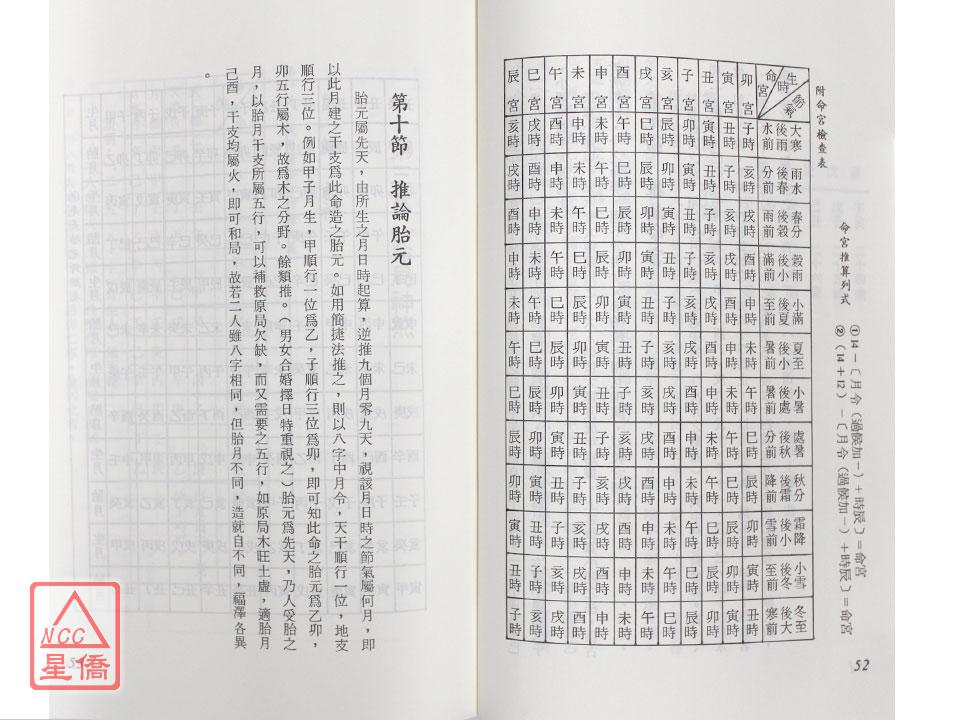 附命宮檢查表
命宮推算列式
①14－〔月令（過氣加一）＋時辰〕＝命宮
②（14＋12）－〔月令（過氣加一）＋時辰〕＝命宮
生時 節氣 命宮
大寒後雨水前 雨水後春分前 春分後穀雨前 穀雨後小滿前 小滿後夏至前 夏至後小暑前 小暑後處暑前 處暑後秋分前 秋分後霜降前 霜降後小雪前 小雪後冬至前 冬至後大寒前
卯宮 子時 亥時 戌時 酉時 申時 未時 午時 巳時 辰時 卯時 寅時 丑時
寅宮 丑時 子時 亥時 戌時 酉時 申時 未時 午時 巳時 辰時 卯時 寅時
丑宮 寅時 丑時 子時 亥時 戌時 酉時 申時 未時 午時 巳時 辰時 卯時
子宮 卯時 寅時 丑時 子時 亥時 戌時 酉時 申時 未時 午時 巳時 辰時
亥宮 辰時 卯時 寅時 丑時 子時 亥時 戌時 酉時 申時 未時 午時 巳時
戌宮 巳時 辰時 卯時 寅時 丑時 子時 亥時 戌時 酉時 申時 未時 午時
酉宮 午時 巳時 辰時 卯時 寅時 丑時 子時 亥時 戌時 酉時 申時 未時
申宮 未時 午時 巳時 辰時 卯時 寅時 丑時 子時 亥時 戌時 酉時 申時
未宮 申時 未時 午時 巳時 辰時 卯時 寅時 丑時 子時 亥時 戌時 酉時
午宮 酉時 申時 未時 午時 巳時 辰時 卯時 寅時 丑時 子時 亥時 戌時
巳宮 戌時 酉時 申時 未時 午時 巳時 辰時 卯時 寅時 丑時 子時 亥時
辰宮 亥時 戌時 酉時 申時 未時 午時 巳時 辰時 卯時 寅時 丑時 子時
52
第十節 推論胎元
胎元屬先天，由所生之月日時起算，逆推九個月零九天，視該月日時之節氣屬何月，即
以此月建之干支爲此命造之胎元。如用簡捷法推之，則以八字中月令，天干順行一位，地支
順行三位。例如甲子月生，甲順行一位爲乙，子順行三位爲卯，即可知此命之胎元爲乙卯，
卯五行屬木，故爲木之分野。餘類推。（男女合婚擇日特重視之）胎元爲先天，乃人受胎之
月，以胎月干支所屬五行，可以補救原局欠缺，而又需要之五行，如原局木旺土虛，適胎月
己酉，干支均屬火，即可和局，故若二人雖八字相同，但胎月不同，造就自不同，福澤各異
。
NCC
星僑